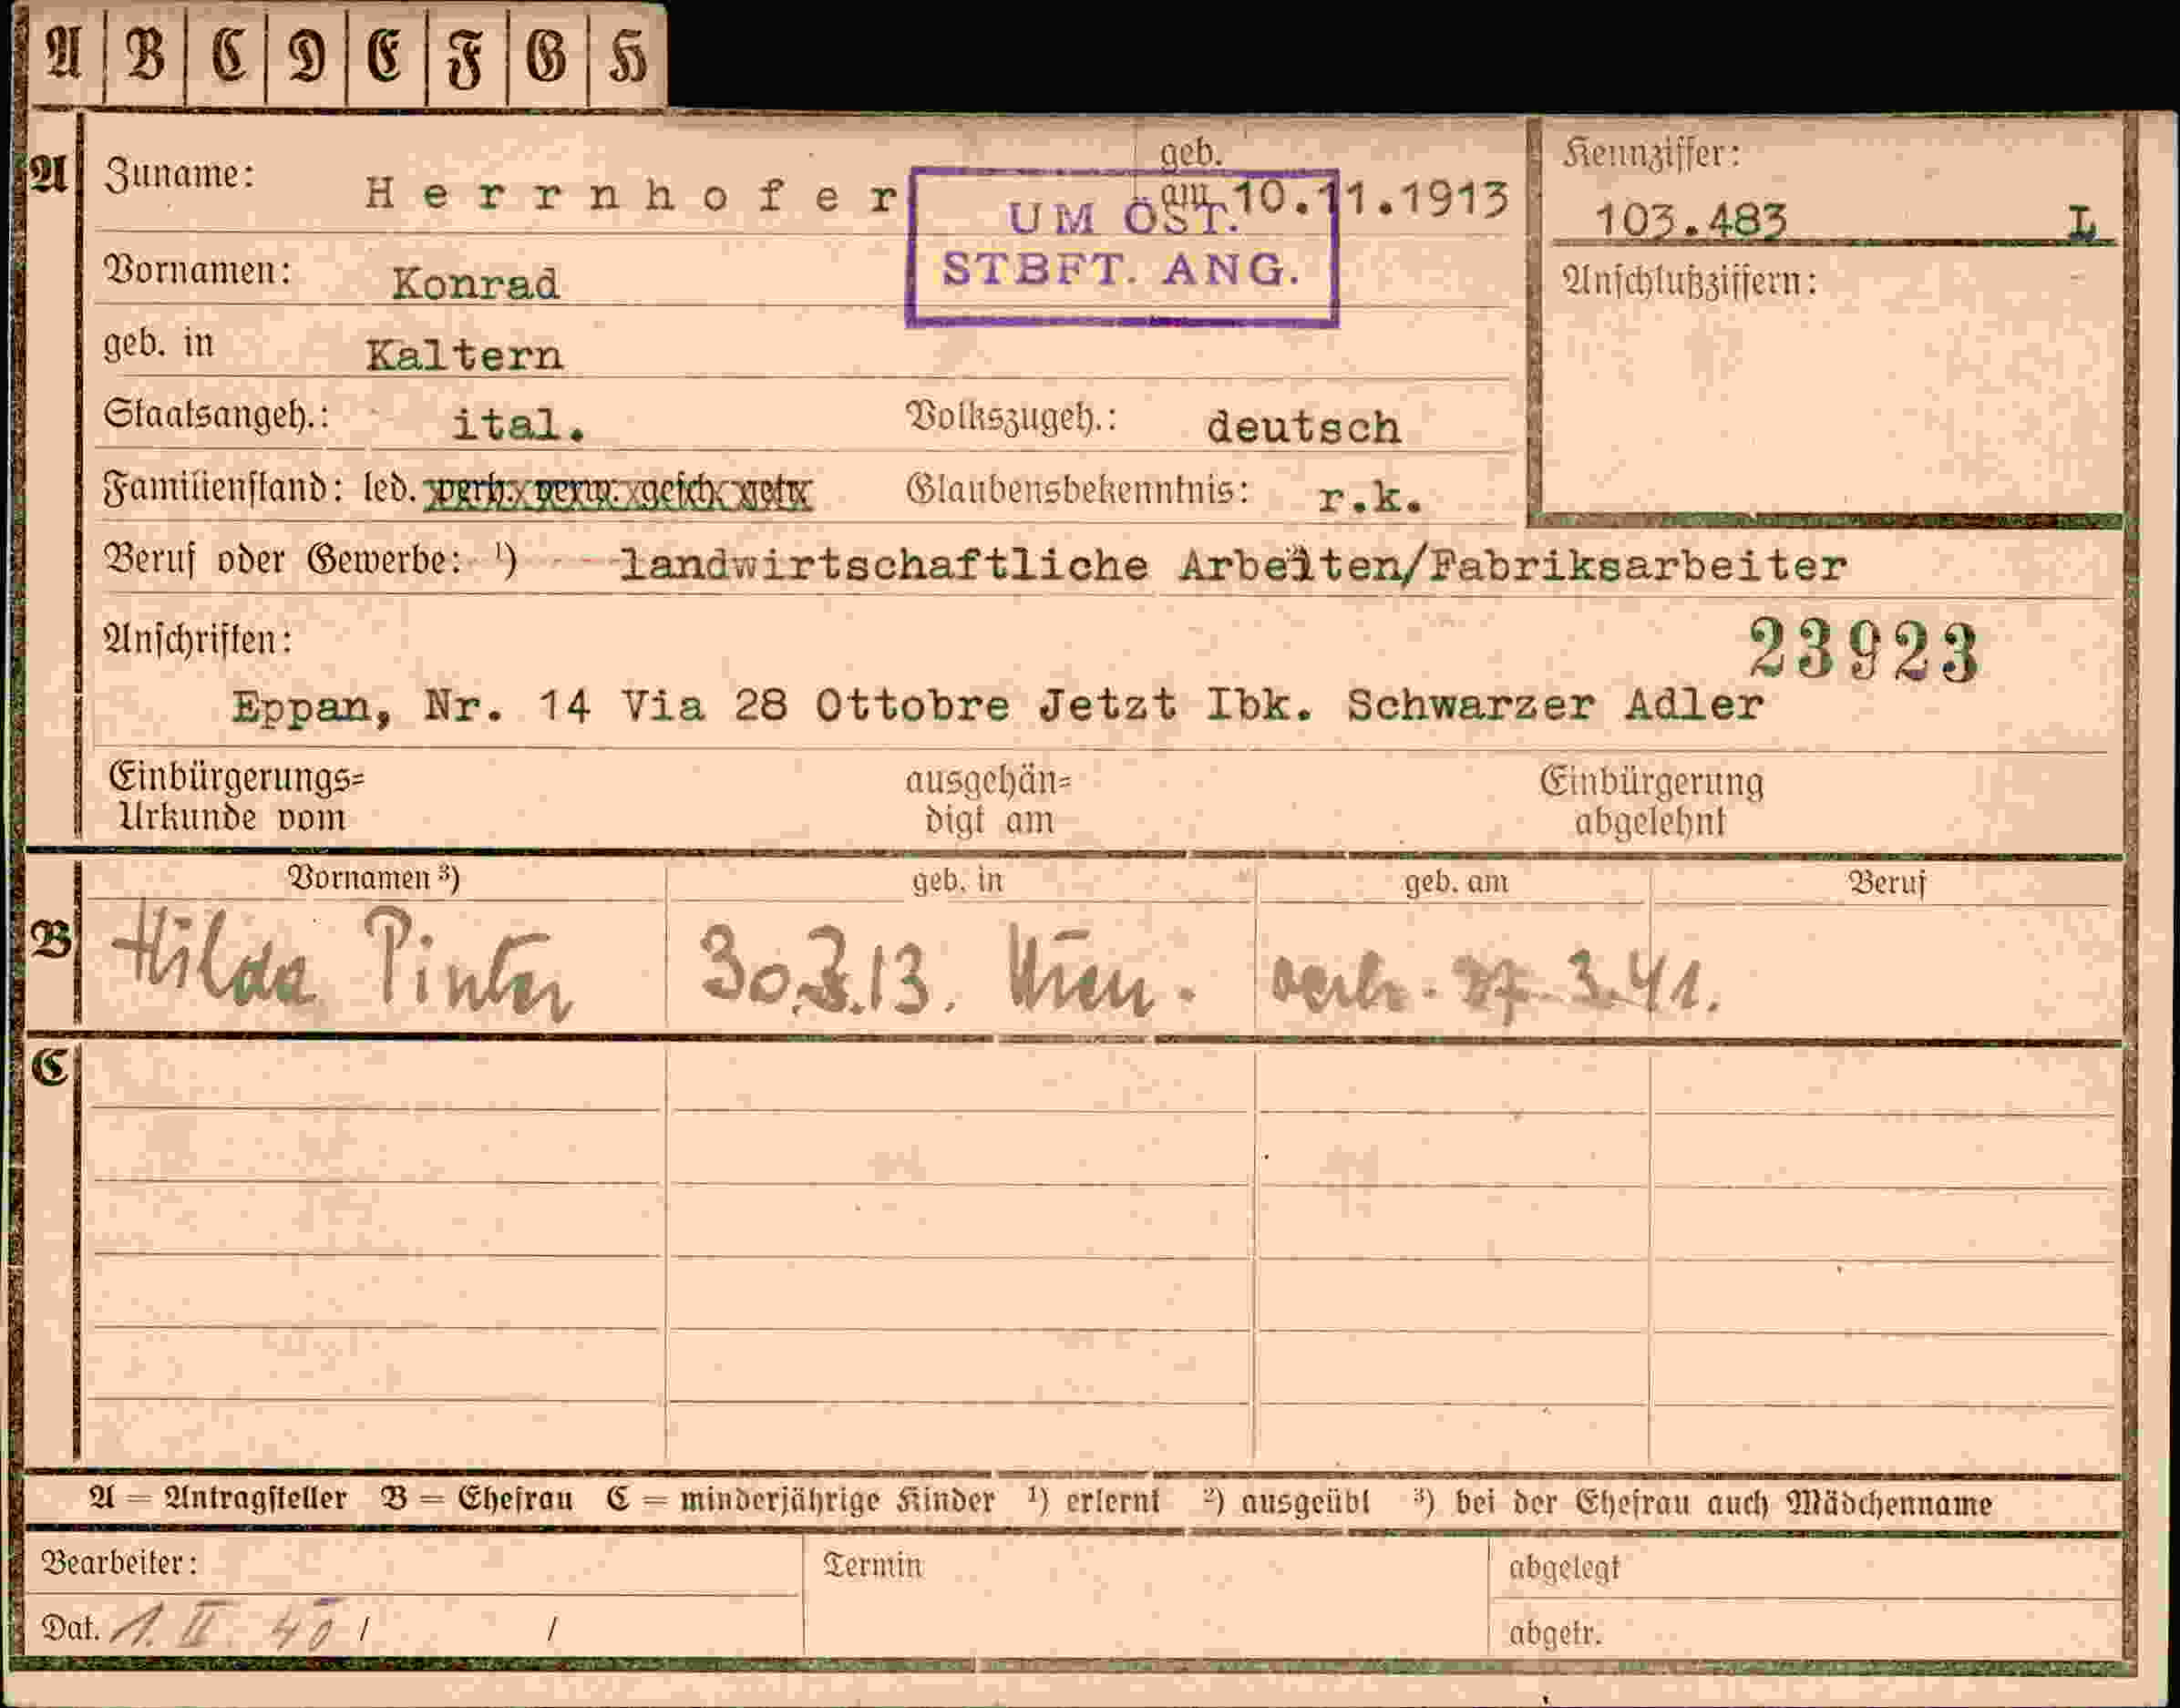 A B C D E F G H
A Zuname: Herrnhofer geb. am 10.11.1913 Kennziffer:
103.483 L
UM ÖST.
STBFT. ANG.
Vornamen: Konrad Anschlußziffern:
geb. in Kaltern
Staatsangeh.: ital. Volkszugeh.: deutsch
Familienstand: led. verh. verw. gesch. getr. Glaubensbekenntnis: r.k.
Beruf oder Gewerbe: ¹) landwirtschaftliche Arbeiten/Fabriksarbeiter
Anschriften: 23923
Eppan, Nr. 14 Via 28 Ottobre Jetzt Ibk. Schwarzer Adler
Einbürgerungs= ausgehän= Einbürgerung
Urkunde vom digt am abgelehnt
Vornamen ³) geb. in geb. am Beruf
B Hilda Pinter 30.3.13. Wien. verh. 27.3.41.
C
A = Antragsteller B = Ehefrau C = minderjährige Kinder ¹) erlernt ²) ausgeübt ³) bei der Ehefrau auch Mädchenname
Bearbeiter: Termin abgelegt
Dat. 1. II. 40 / / abgetr.